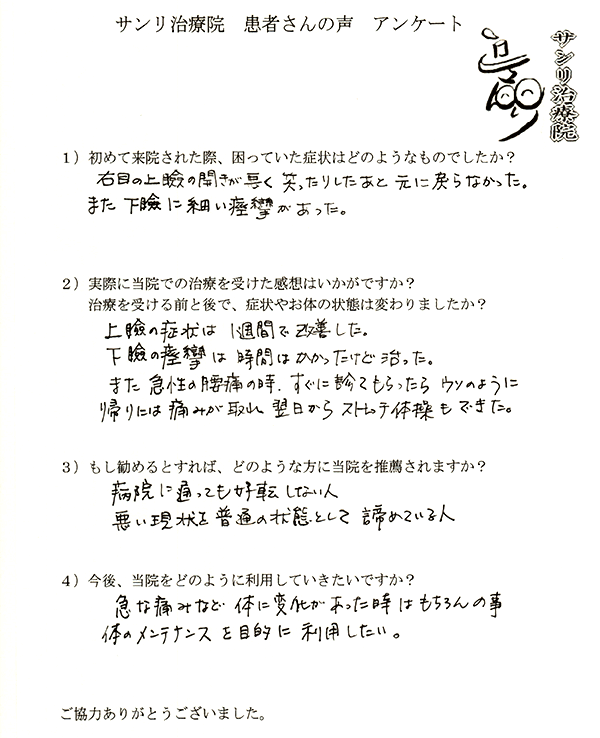 サンリ治療院　患者さんの声　アンケート
サンリ治療院
1）初めて来院された際、困っていた症状はどのようなものでしたか？
右目の上瞼の開きが
笑ったりしたあと 元に戻らなかった。
また 下瞼に細い痙攣があった。
2）実際に当院での治療を受けた感想はいかがですか？
治療を受ける前と後で、症状やお体の状態は変わりましたか？
上瞼の症状は 1週間で改善した。
下瞼の痙攣は 時間はかかったけど治った。
また 急性の腰痛の時、すぐに診てもらったら ウソのように
帰りには 痛みが取れ 翌日から ストレッチ体操もできた。
3）もし勧めるとすれば、どのような方に当院を推薦されますか？
病院に通っても好転しない人
悪い現状を普通の状態として 諦めている人
4）今後、当院をどのように利用していきたいですか？
急な痛みなど 体に変化があった時はもちろんの事
体のメンテナンスを目的に 利用したい。
ご協力ありがとうございました。